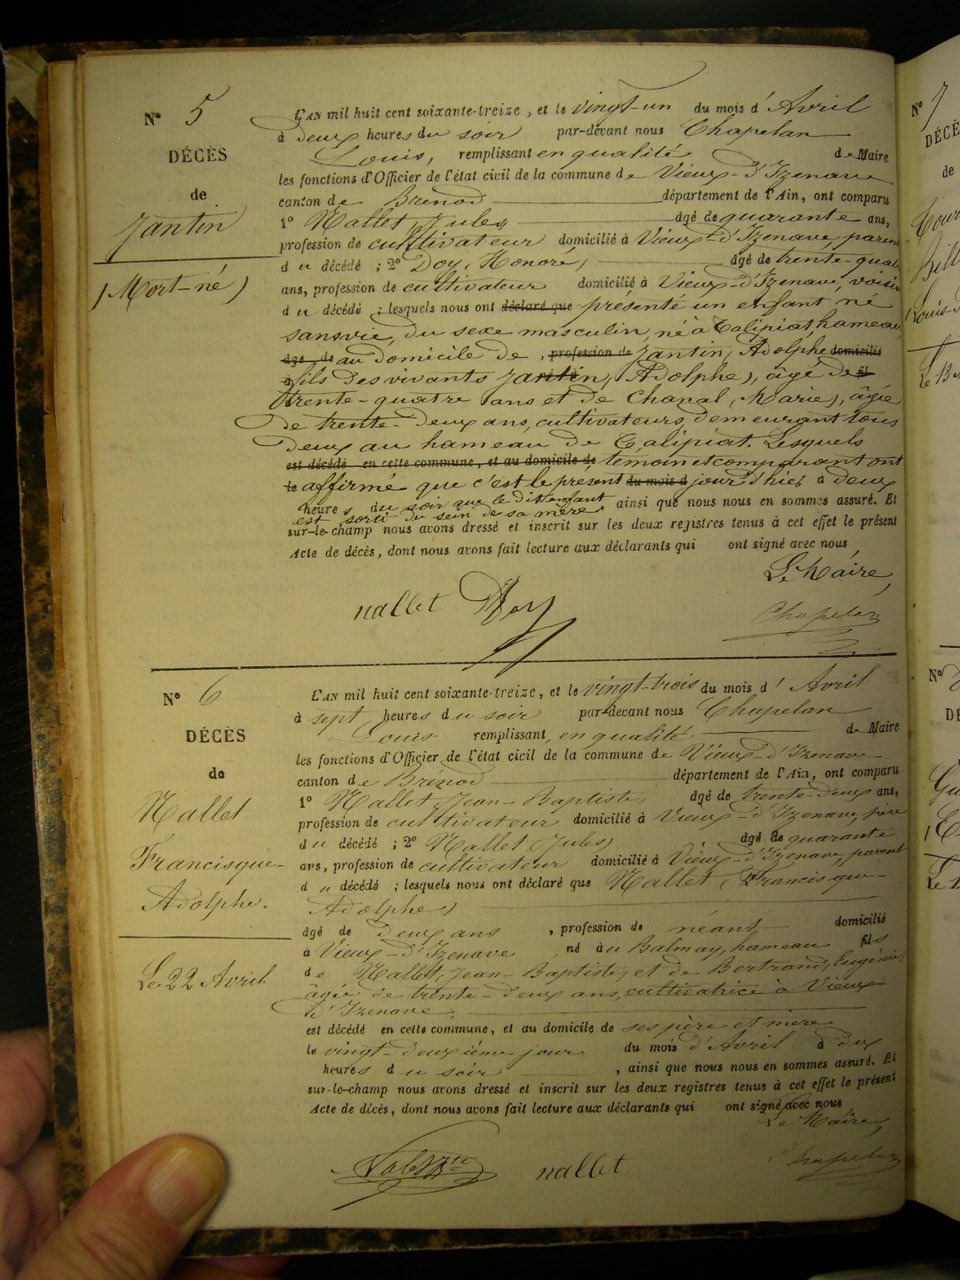 N° 5
DÉCÈS
de
Jantin
(Mort-né)
L'AN mil huit cent soixante-treize, et le vingt-un du mois d'Avril
à deux heures du soir par-devant nous Chapelan
Louis, remplissant en qualité de Maire
les fonctions d'Officier de l'état civil de la commune de Vieux-d'Izenave
canton de Brenod département de l'Ain, ont comparu
1° Nallet, Jules âgé de quarante ans,
profession de cultivateur domicilié à Vieux-d'Izenave, parent
du décédé ; 2° Doy, Honoré, âgé de trente-quatre
ans, profession de cultivateur domicilié à Vieux-d'Izenave, voisin
du décédé ; lesquels nous ont déclaré que présenté un enfant né
sans vie, du sexe masculin, né à Talipiat, hameau,
âgé de au domicile de , profession de Jantin, Adolphe domicilié
à fils des vivants Jantin, Adolphe), âgé de fil
trente-quatre ans et de Chanal (Marie), âgée
de trente-deux ans, cultivateurs, demeurant tous
deux au hameau de Talipiat. Lesquels
est décédé en cette commune, et au domicile de témoin et comparant ont
le affirmé que c'est le présent du mois d jour d'hier à deux
heures du soir que le dit enfant ainsi que nous nous en sommes assuré. Et
est sorti du sein de sa mère
sur-le-champ nous avons dressé et inscrit sur les deux registres tenus à cet effet le présent
Acte de décès, dont nous avons fait lecture aux déclarants qui ont signé avec nous
Le Maire,
nallet Doy Chapelan
N° 6
DÉCÈS
de
Nallet
Francisque-
Adolphe.
Le 22 Avril
L'AN mil huit cent soixante-treize, et le vingt-trois du mois d'Avril
à sept heures du soir par-devant nous Chapelan
Louis remplissant en qualité de Maire
les fonctions d'Officier de l'état civil de la commune de Vieux-d'Izenave
canton de Brenod département de l'Ain, ont comparu
1° Nallet, Jean-Baptiste, âgé de trente-deux ans,
profession de cultivateur domicilié à Vieux-d'Izenave, père
du décédé ; 2° Nallet, Jules) âgé de quarante
ans, profession de cultivateur domicilié à Vieux-d'Izenave, parent
du décédé ; lesquels nous ont déclaré que Nallet (Francisque-
Adolphe)
âgé de deux ans , profession de néant domicilié
à Vieux-d'Izenave né au Balmay, hameau fils
de Nallet, Jean-Baptiste, et de Bertrand, Eugénie,
âgée de trente-deux ans, cultivatrice à Vieux-
d'Izenave
est décédé en cette commune, et au domicile de ses père et mère
le vingt-deuxième jour du mois d'Avril à dix
heures du soir , ainsi que nous nous en sommes assuré. Et
sur-le-champ nous avons dressé et inscrit sur les deux registres tenus à cet effet le présent
Acte de décès, dont nous avons fait lecture aux déclarants qui ont signé avec nous
Le Maire,
nallet Chapelan
N° 7
DÉCÈS
de
Louis
Le 13
N°